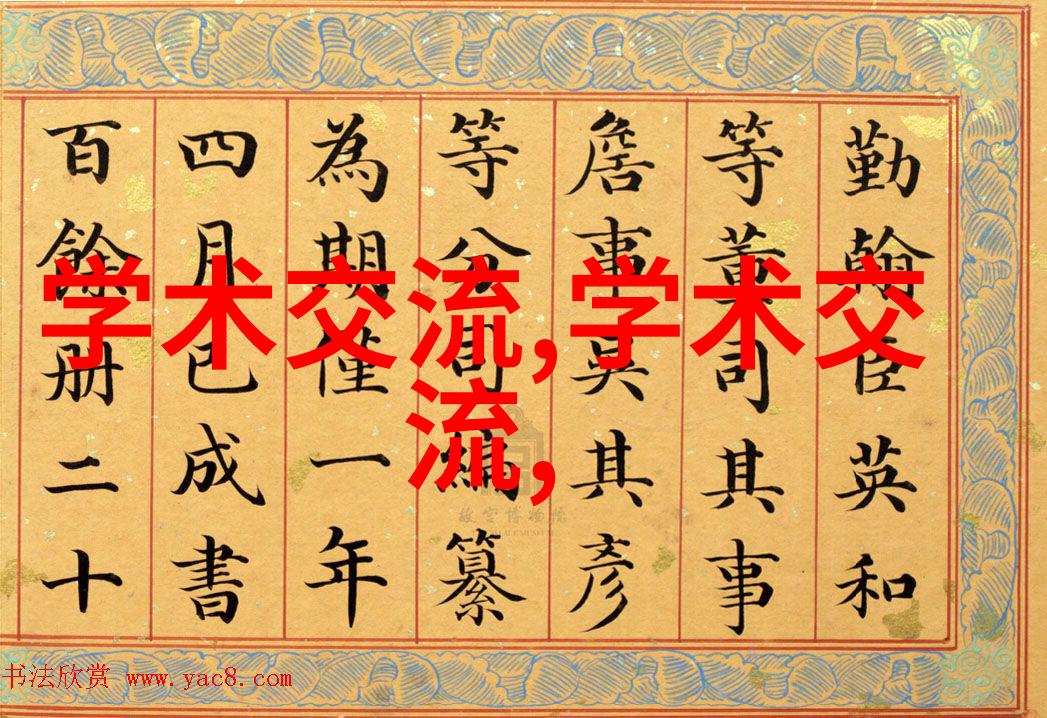 勤翰臣英和
等董司其事
詹事吳其彥
等分司編纂
為期僅一年
四月已成書
百餘册二十
学术交流,学术交
流,
故宫博物院
书法欣赏 www.yac8.com